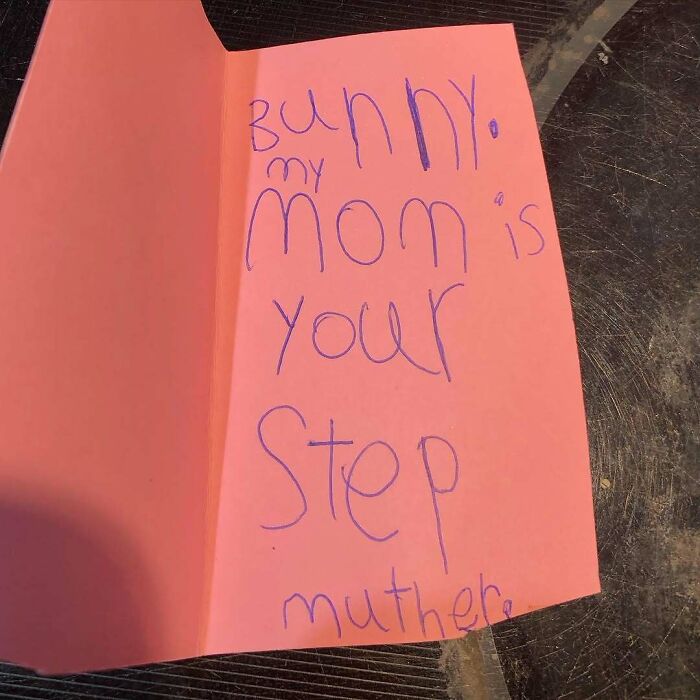 Bunny.
my
Mom is
your
Step
muther.